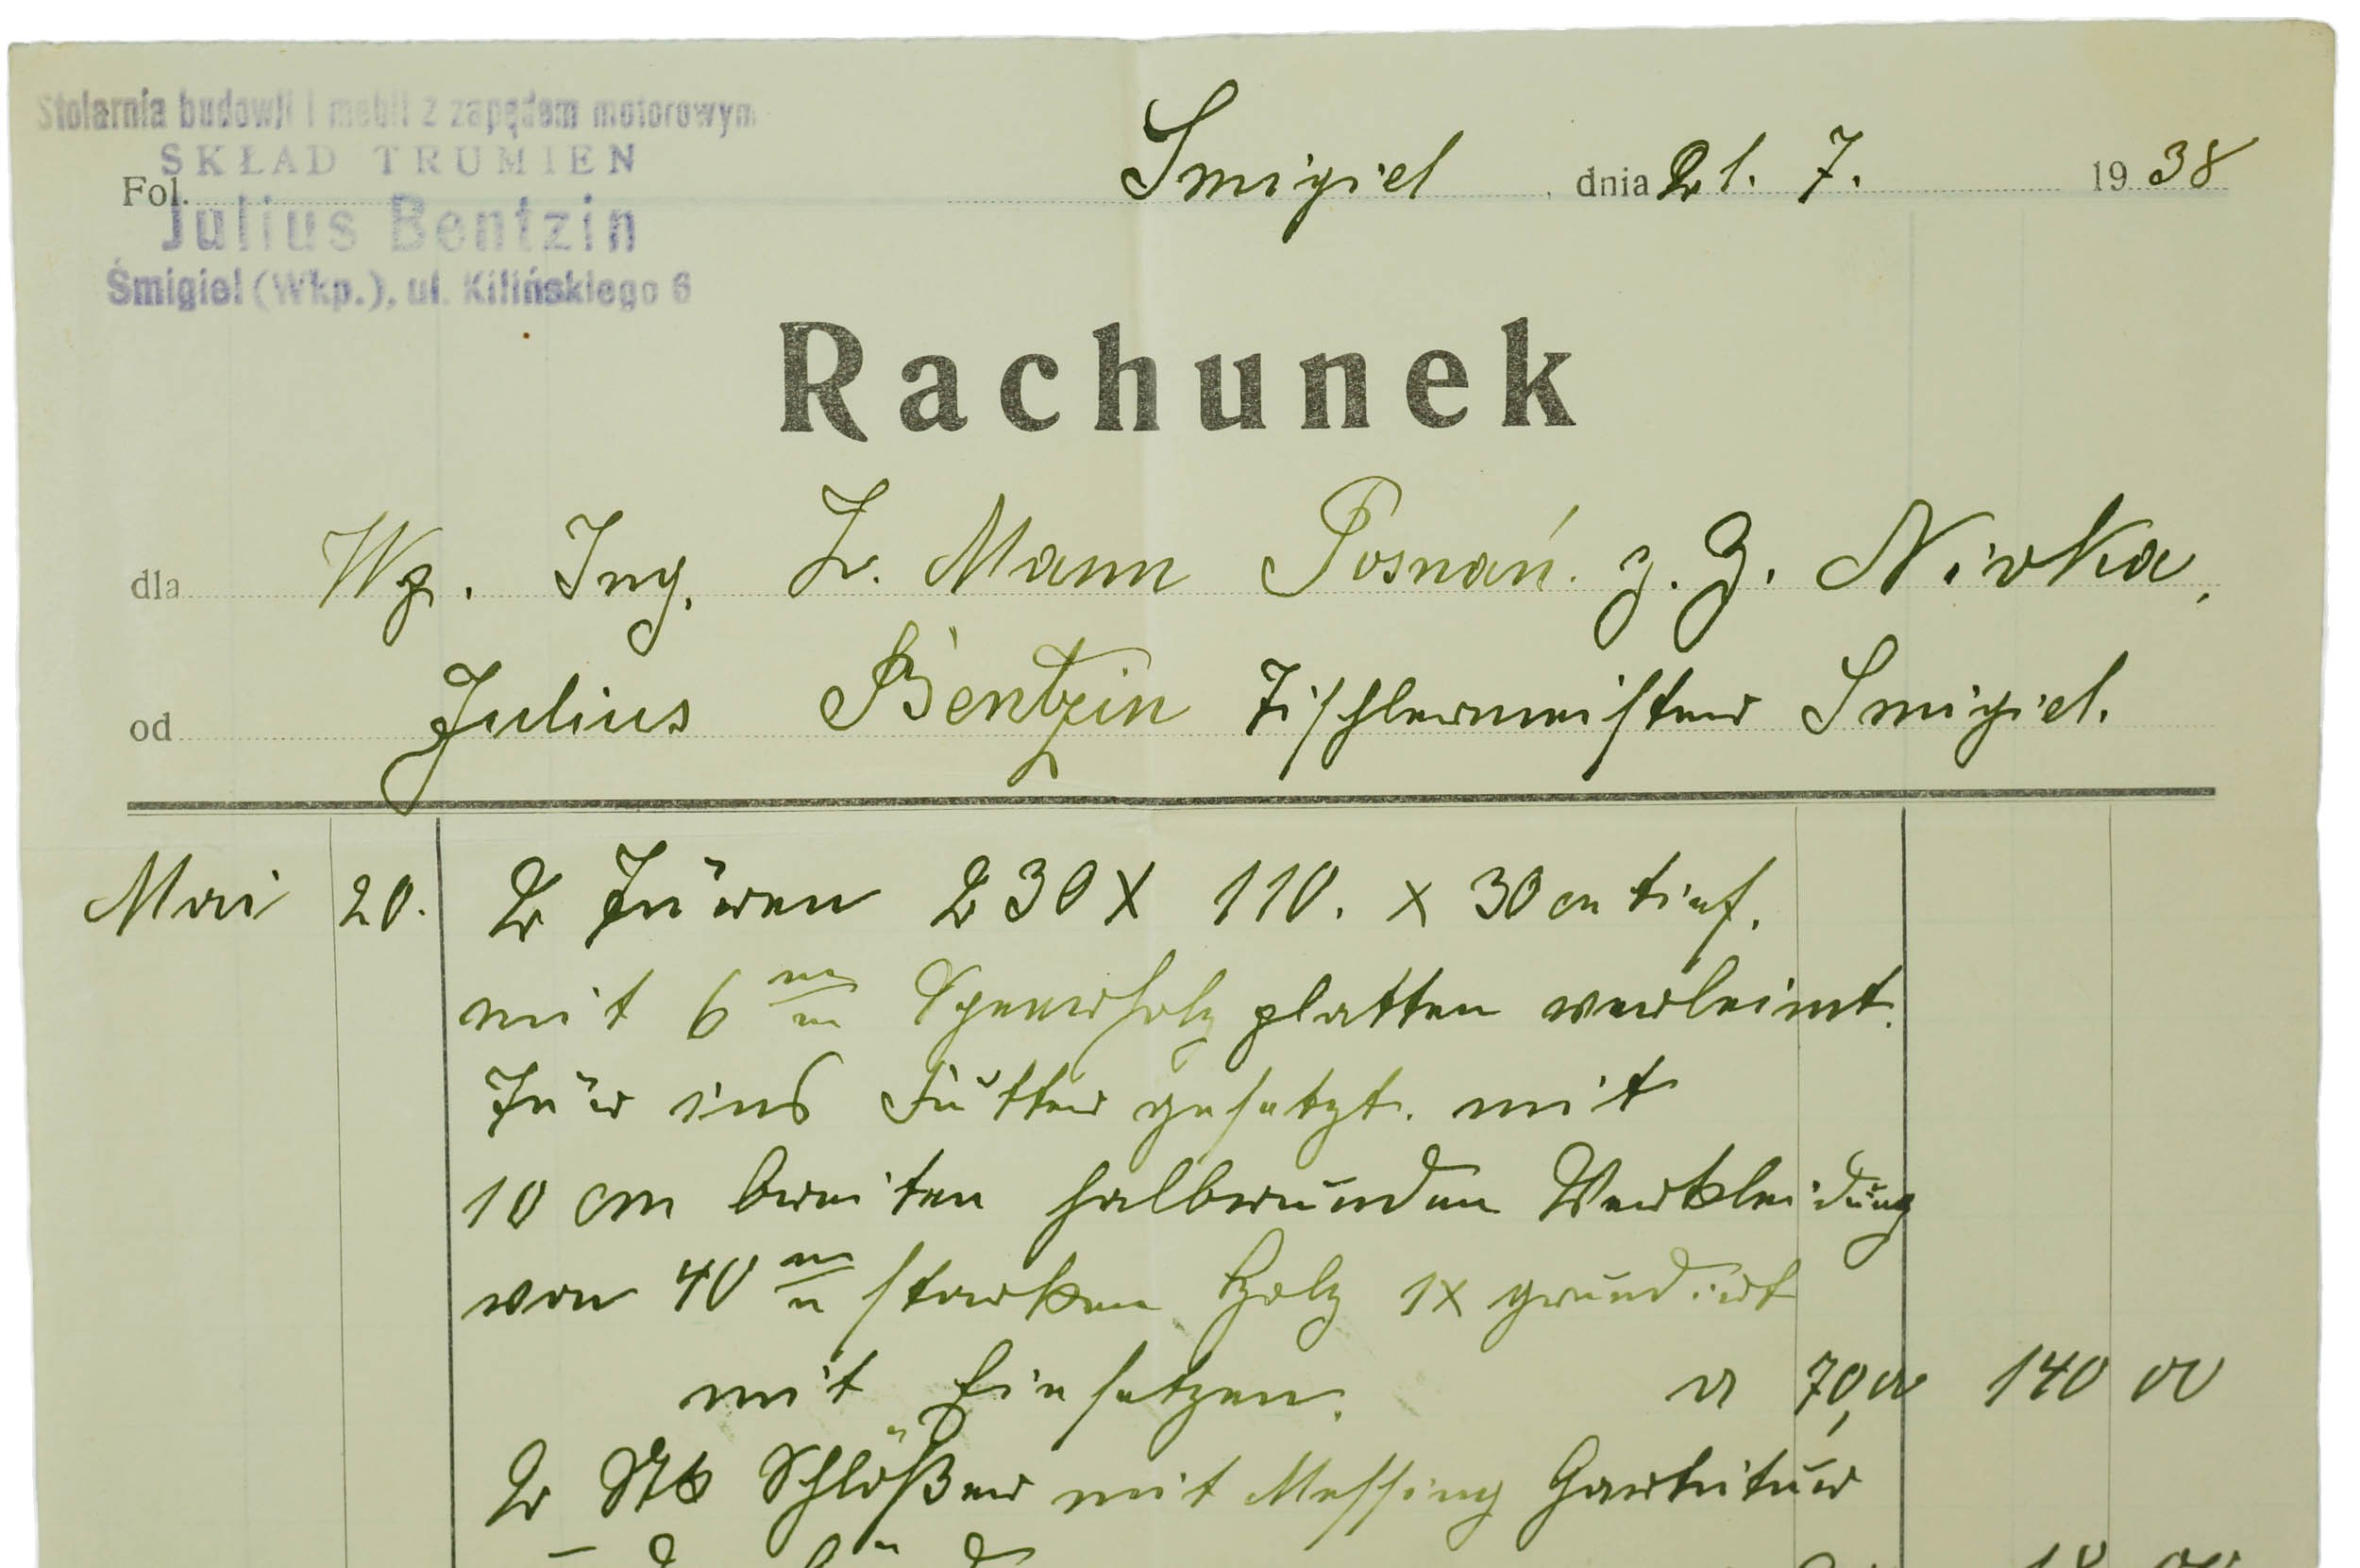 Stolarnia budowli i mebli z zapędem motorowym
SKŁAD TRUMIEN
Fol.
Julius Bentzin
Śmigiel (Wkp.), ul. Kilińskiego 6
Smigiel, dnia 21. 7. 1938
Rachunek
dla Wp. Ing. L. Mann Posnań. z. Z. Nivka,
od Julius Bentzin Tischlermeister Smigiel.
Mai 20. 2 Türen 230 X 110. x 30 cm tief.
mit 6 m/m Sperrholzplatten verleimt.
Tür ins Futter gesetzt. mit
10 cm breiten halbrunden Verkleidung
von 40 m/m starken Holz 1x grundirt
mit Einsetzen. a 70,00 140 00
2 Stk Schlößer mit Messing Garnitur